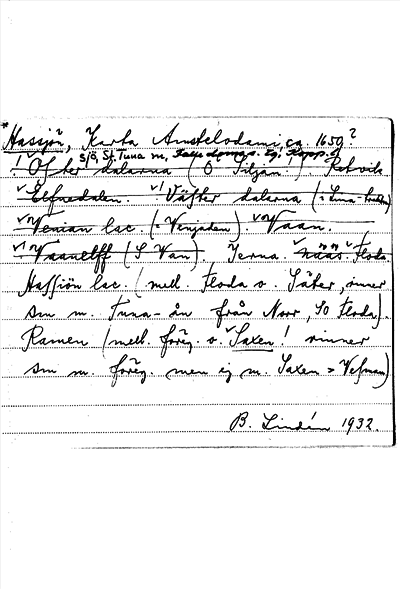 *Hassjön, Karta Amstelodami, ca 1650?
sjö, St. Tuna sn, Kopp.
Öfter dalarna (Ö Siljan). Retvik
Elfuedalen. Väster dalarna
Venian lac. (= Venjaden). Vaan.
Vaanelff (S Van). Jerna. Floda
Hassiön lac. (mell. Floda o. Säter, rinner
sm m. Tuna-ån från Norr, SO Floda).
Ramen (mell. föreg. o. Saxen! rinner
sm m. föreg. men ej m. Saxen > Vesman)
B. Lindén 1932.